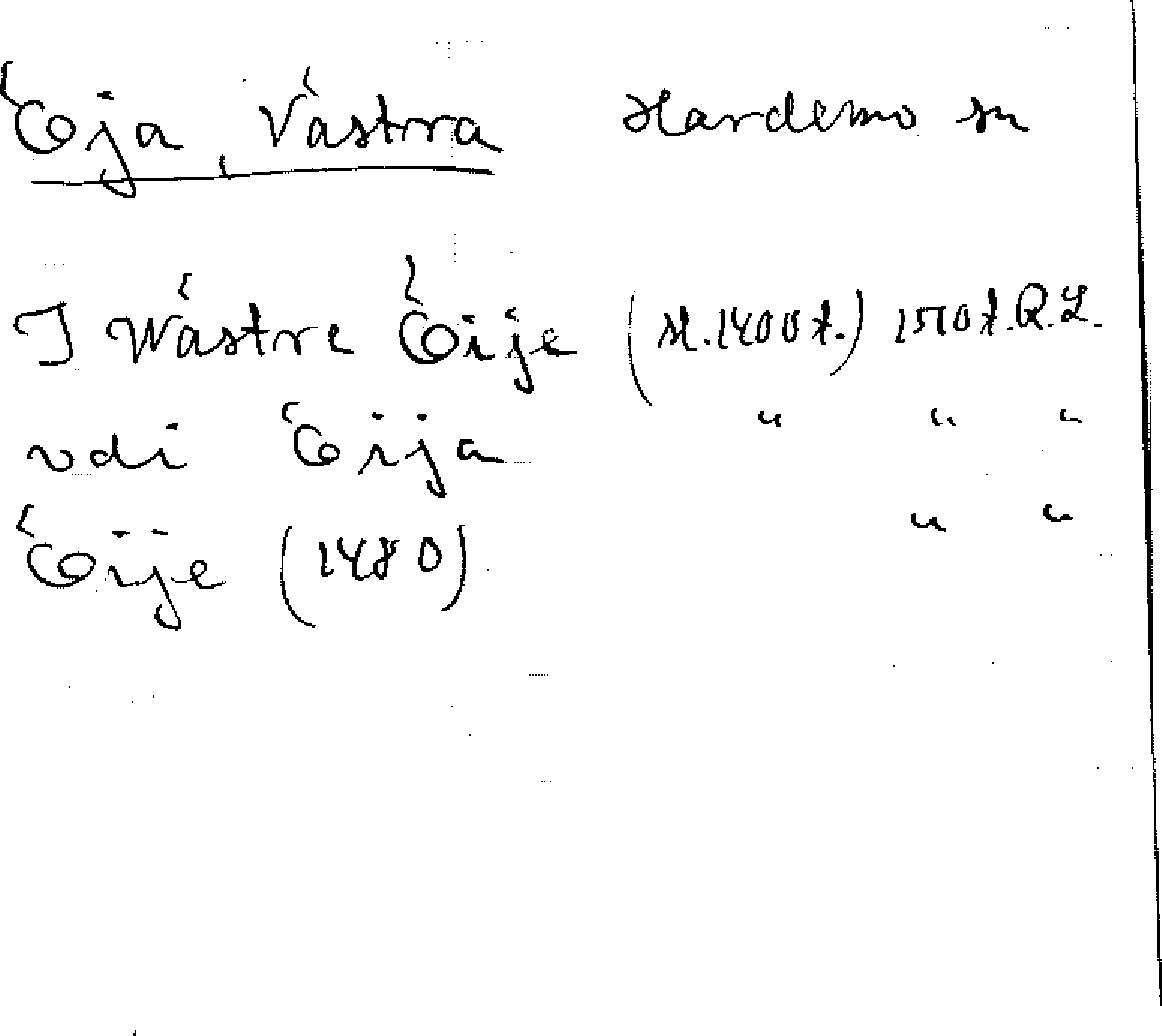 Öja, Västra Hardemo sn
J Wästre Öije (sl. 1400 t.) 1510 t.
vdi Öija " " "
Öije (1480) " "